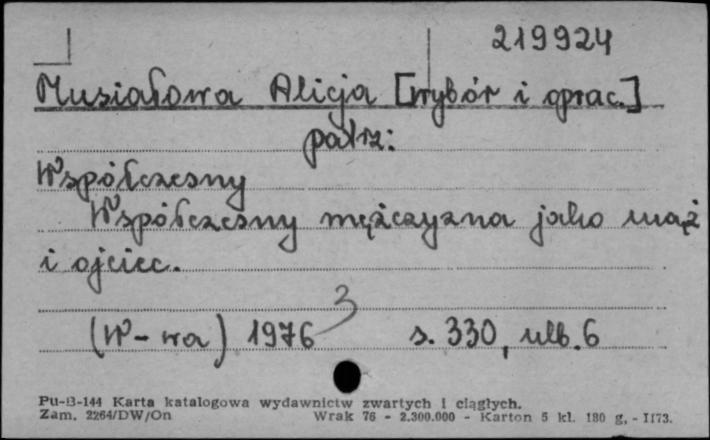 219924
Musiałowa Alicja [wybór i oprac.]
patrz:
Współczesny
Współczesny mężczyzna jako mąż
i ojciec.
(W-wa) 1976 3 s. 330, nlb. 6
Pu-B-144 Karta katalogowa wydawnictw zwartych i ciągłych.
Zam. 2264/DW/On Wrak 76 - 2.300.000 - Karton 5 kl. 180 g, - II73.